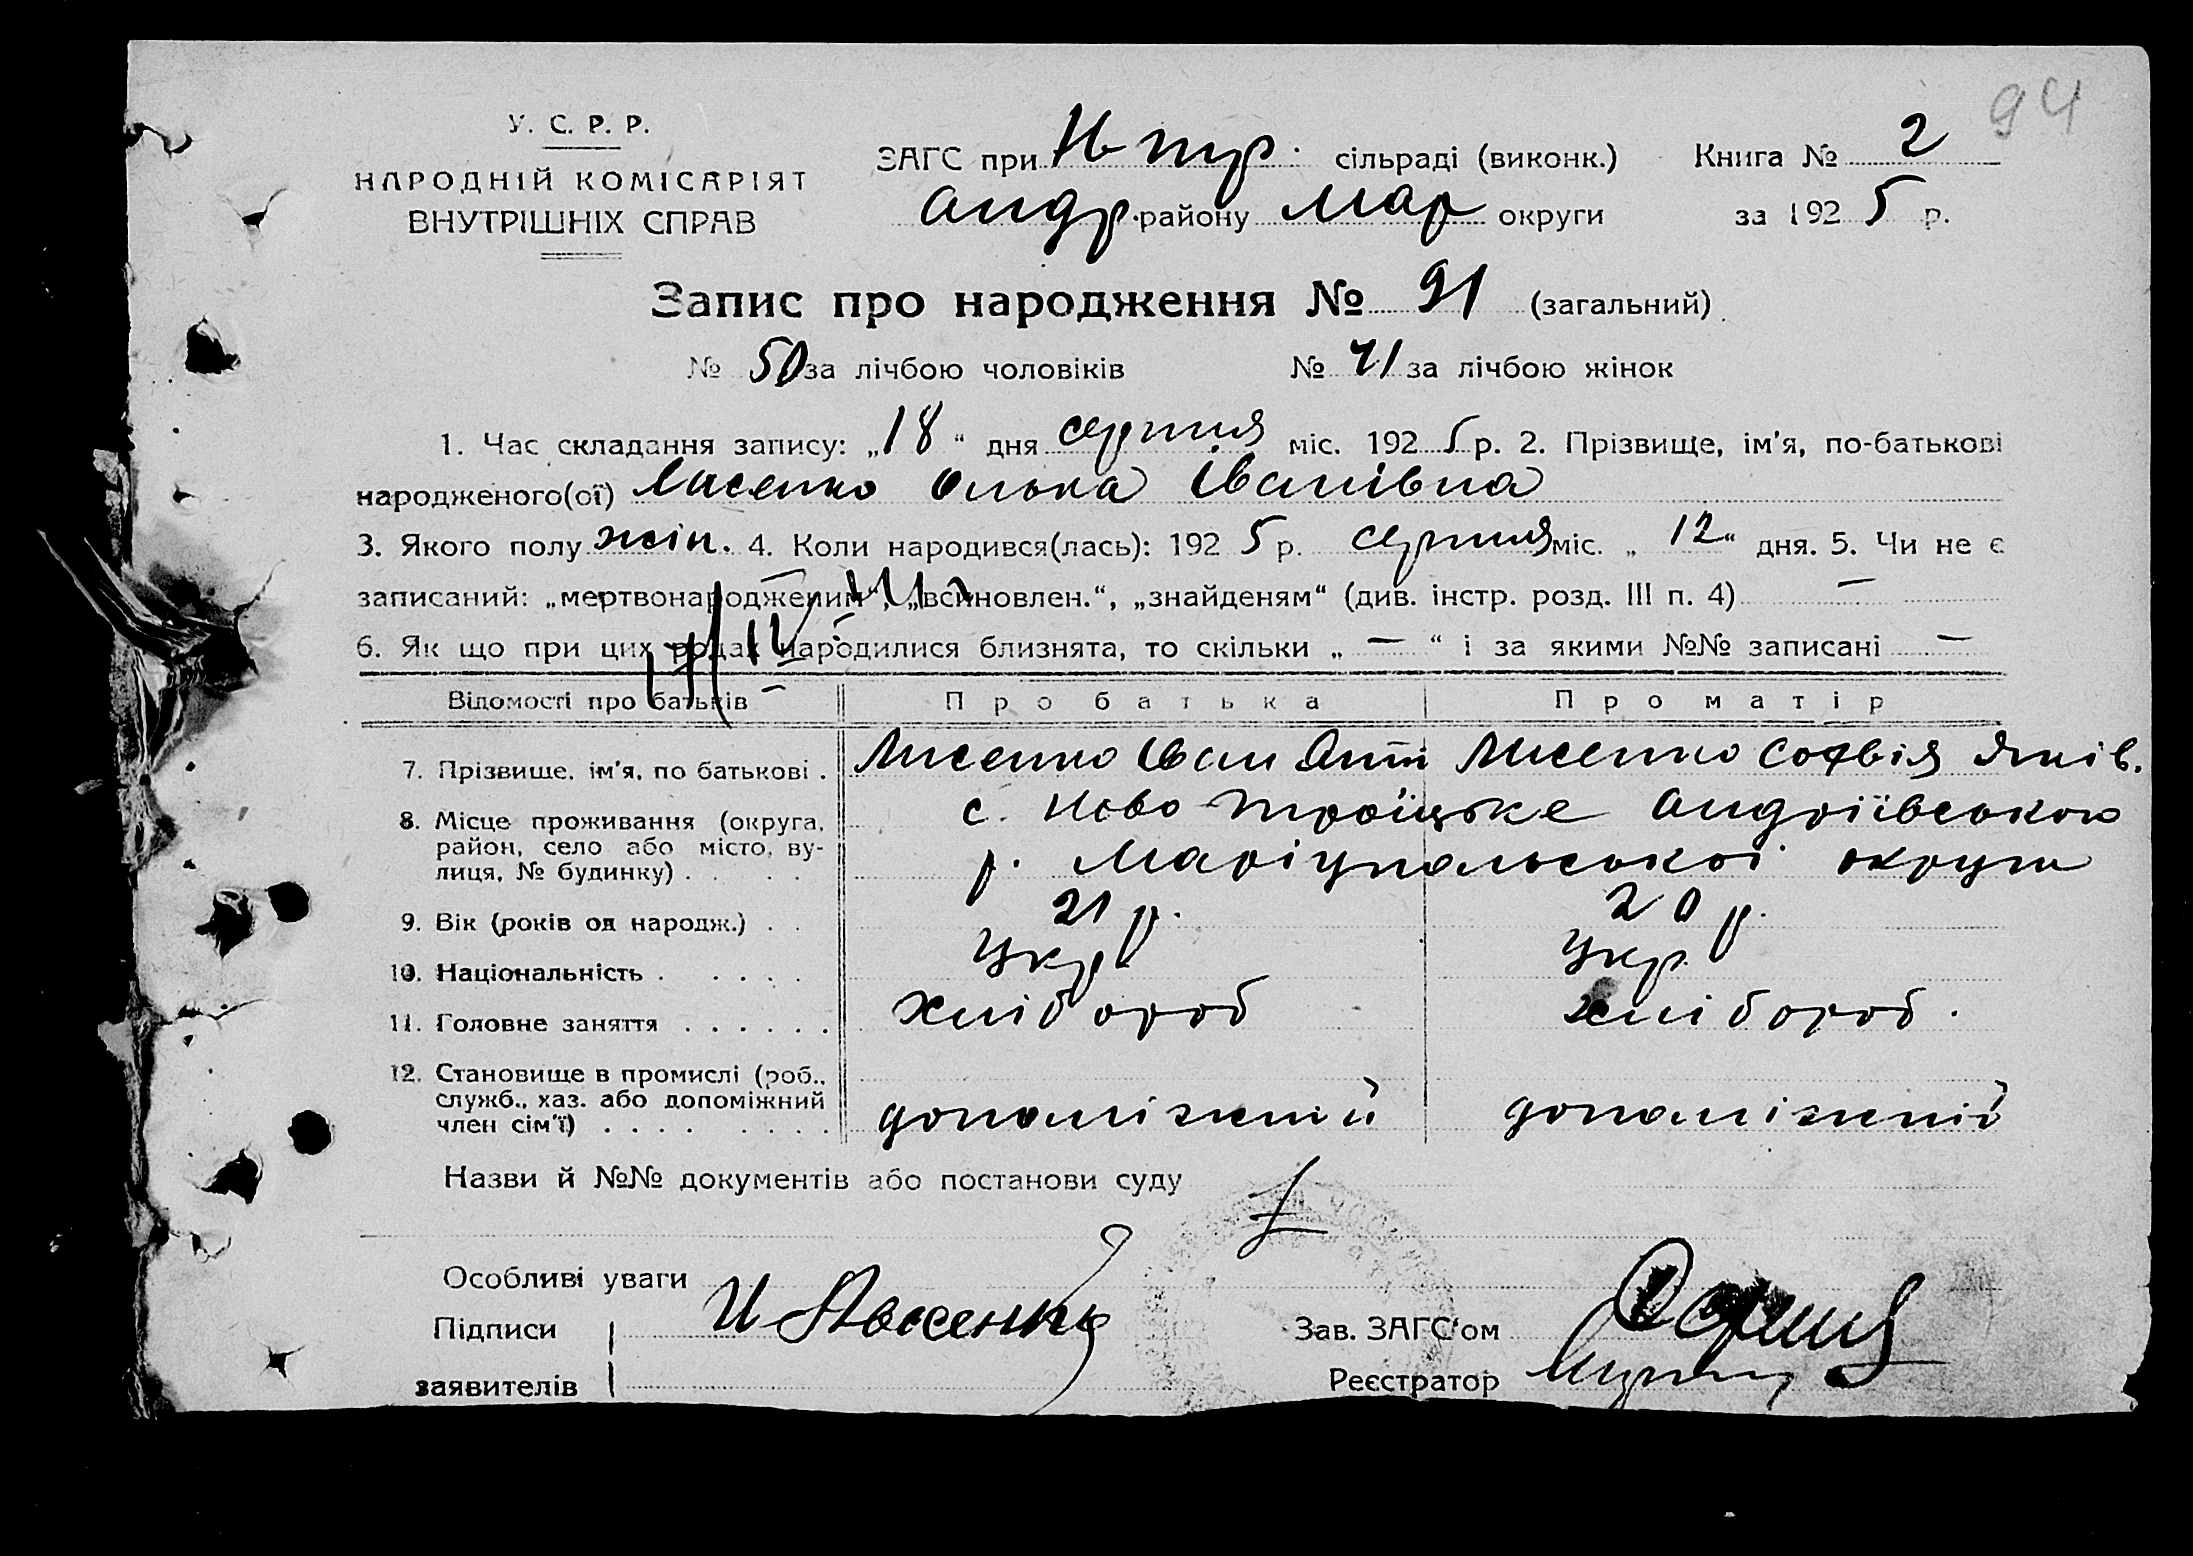 94
У. С. Р. Р.
НАРОДНІЙ КОМІСАРІЯТ
ВНУТРІШНІХ СПРАВ
ЗАГС при Н-тр. сільраді (виконк.) Книга № 2
Андр. району Мар округи за 1925 р.
Запис про народження № 91 (загальний)
№ 50 за лічбою чоловіків № 41 за лічбою жінок
1. Час складання запису: „18“ дня серпня міс. 1925 р. 2. Прізвище, ім'я, по-батькові
народженого(ої) Лисенко Олька Іванівна
3. Якого полу жін. 4. Коли народився(лась): 1925 р. серпня міс. „12“ дня. 5. Чи не є
записаний: „мертвонародженим“, „всиновлен.“, „знайденям“ (див. інстр. розд. III п. 4) —
6. Як що при цих родах народилися близнята, то скільки „—“ і за якими №№ записані —
Відомості про батьків Про батька Про матір
7. Прізвище, ім'я, по батькові . Лисенко Іван Ант Лисенко Софвія Яків.
8. Місце проживання (округа, район, село або місто, вулиця, № будинку) . . . с. Ново Троїцьке Андріівського
р. Маріупольськоі округи
9. Вік (років од народж.) . . 21 р. 20 р.
10. Національність . . . . . Укр. Укр.
11. Головне заняття . . . . . . Хлібороб хлібороб.
12. Становище в промислі (роб., служб., хаз. або допоміжний член сім'ї) . . . . . . . . допоміжний допоміжній
Назви й №№ документів або постанови суду
Особливі уваги
Підписи И Лысенко Зав. ЗАГС'ом
заявителів Реєстратор